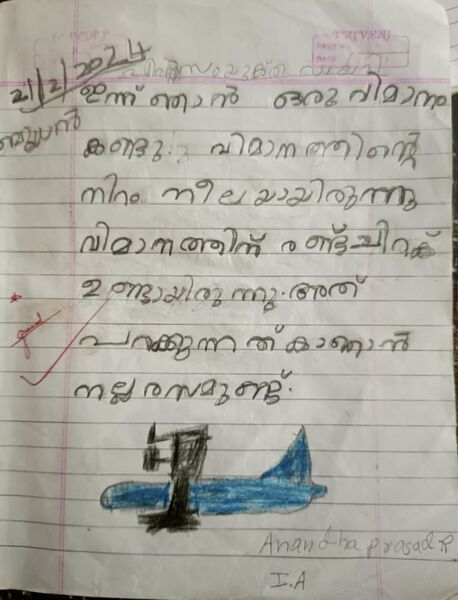 TRIVENI
2/12/2024
ഇന്ന് ഞാൻ ഒരു വിമാനം
കണ്ടു. വിമാനത്തിന്റെ
നിറം നീലയായിരുന്നു
വിമാനത്തിന് രണ്ട് ചിറക്
ഉണ്ടായിരുന്നു. അത്
good
പറക്കുന്നത് കാണാൻ
നല്ല രസമുണ്ട്.
Anandha prasad R
I.A